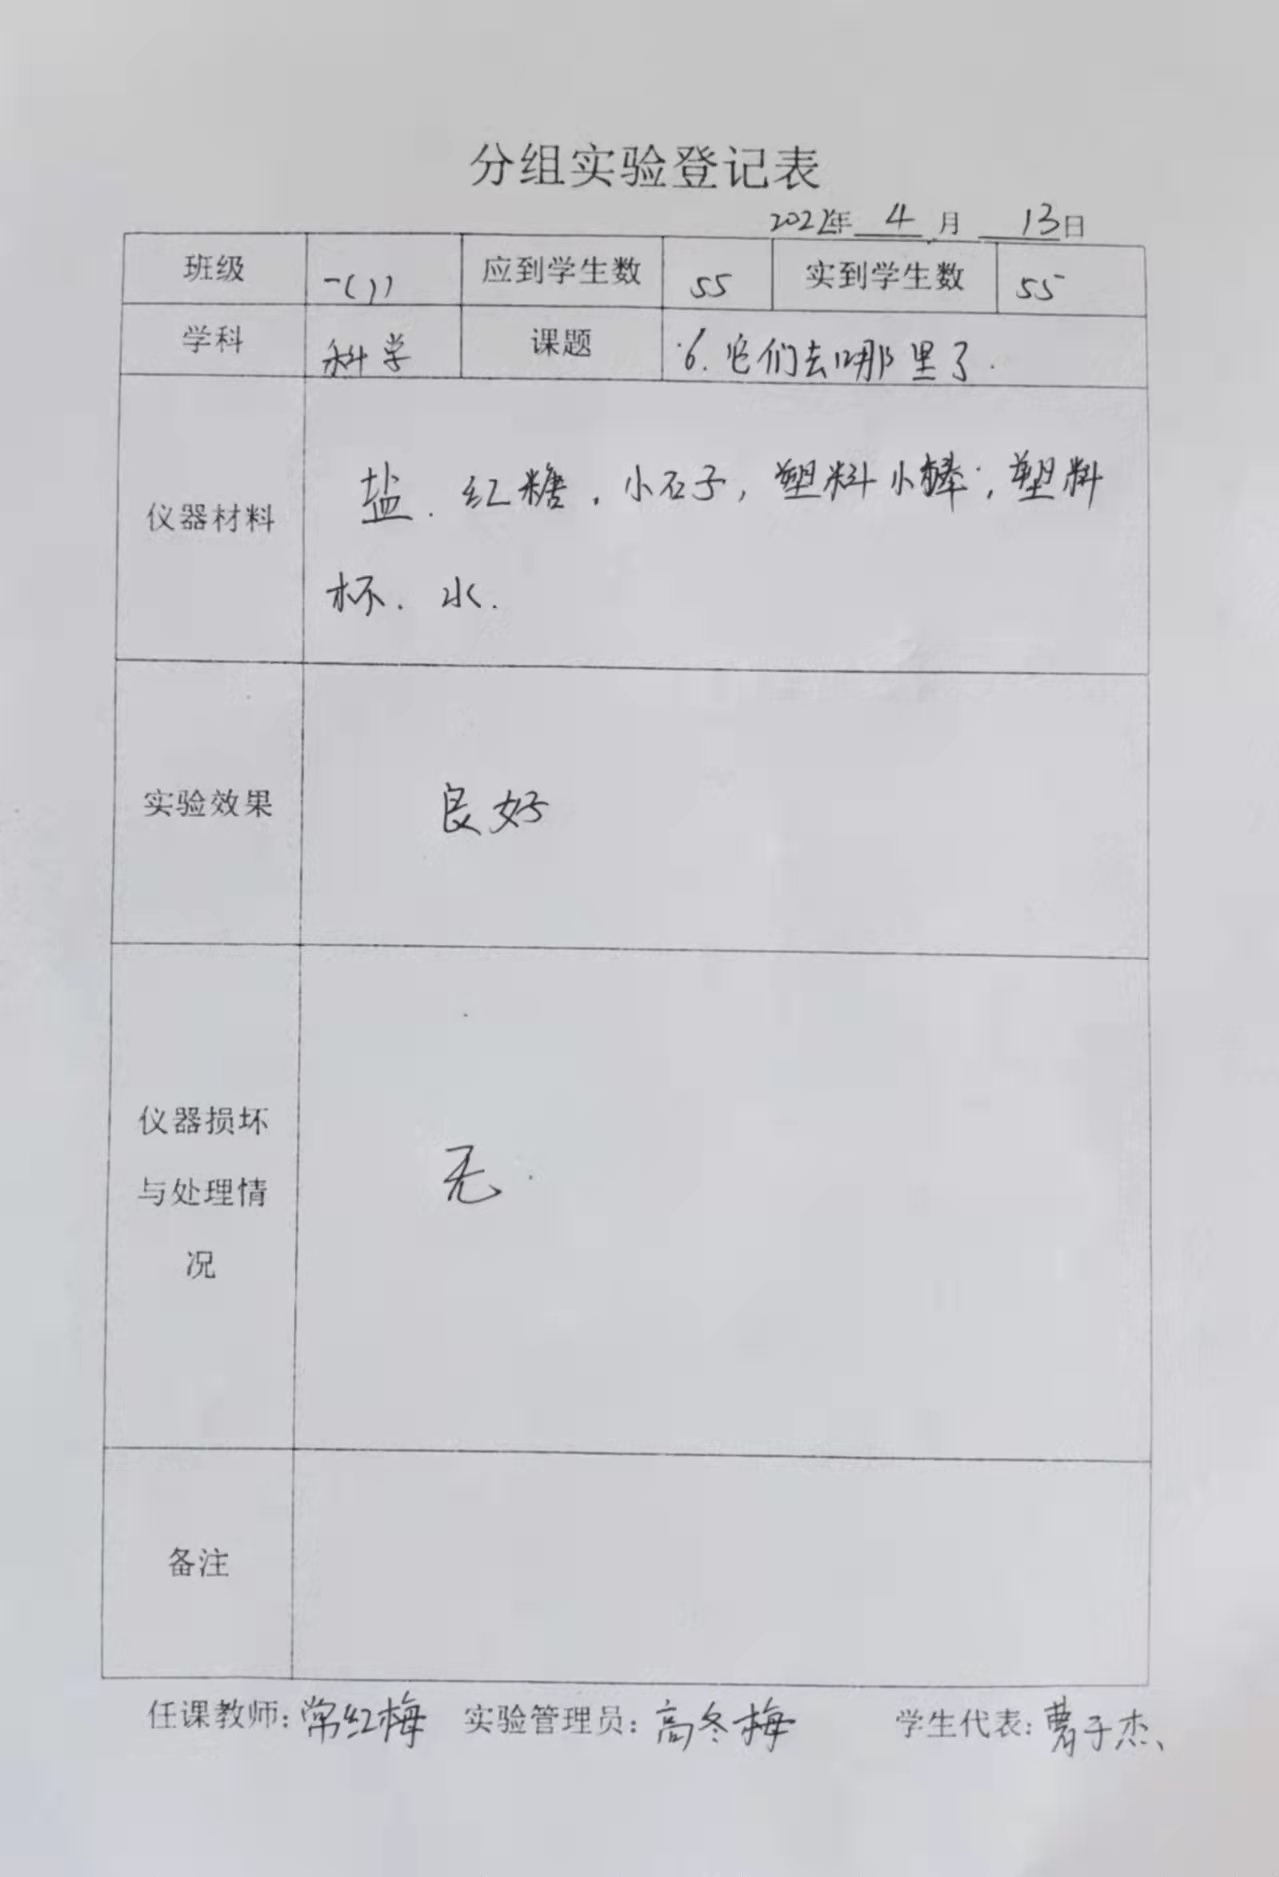 分组实验登记表
2022年 4 月 13日
班级 一(1) 应到学生数 55 实到学生数 55
学科 科学 课题 6.它们去哪里了.
仪器材料 盐.红糖.小石子,塑料小棒;塑料
杯.水.
实验效果 良好
仪器损坏
与处理情
况
无.
备注
任课教师:常红梅 实验管理员:高冬梅 学生代表:曹子杰、